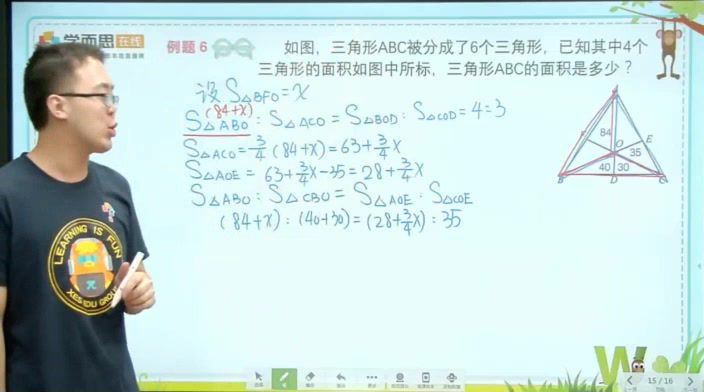 学而思在线
例题6
如图，三角形ABC被分成了6个三角形，已知其中4个
三角形的面积如图中所标，三角形ABC的面积是多少？
设S△BFO=x
(84+x)
S△ABO:S△ACO=S△BOD:S△COD=4:3
S△ACO=3/4(84+x)=63+3/4x
S△AOE=63+3/4x-35=28+3/4x
S△ABO:S△CBO=S△AOE:S△COE
(84+x):(40+30)=(28+3/4x):35
A
F
E
84
O
35
40
30
B
D
C
LEARNING IS FUN
XESEDU GROUP
15 / 16